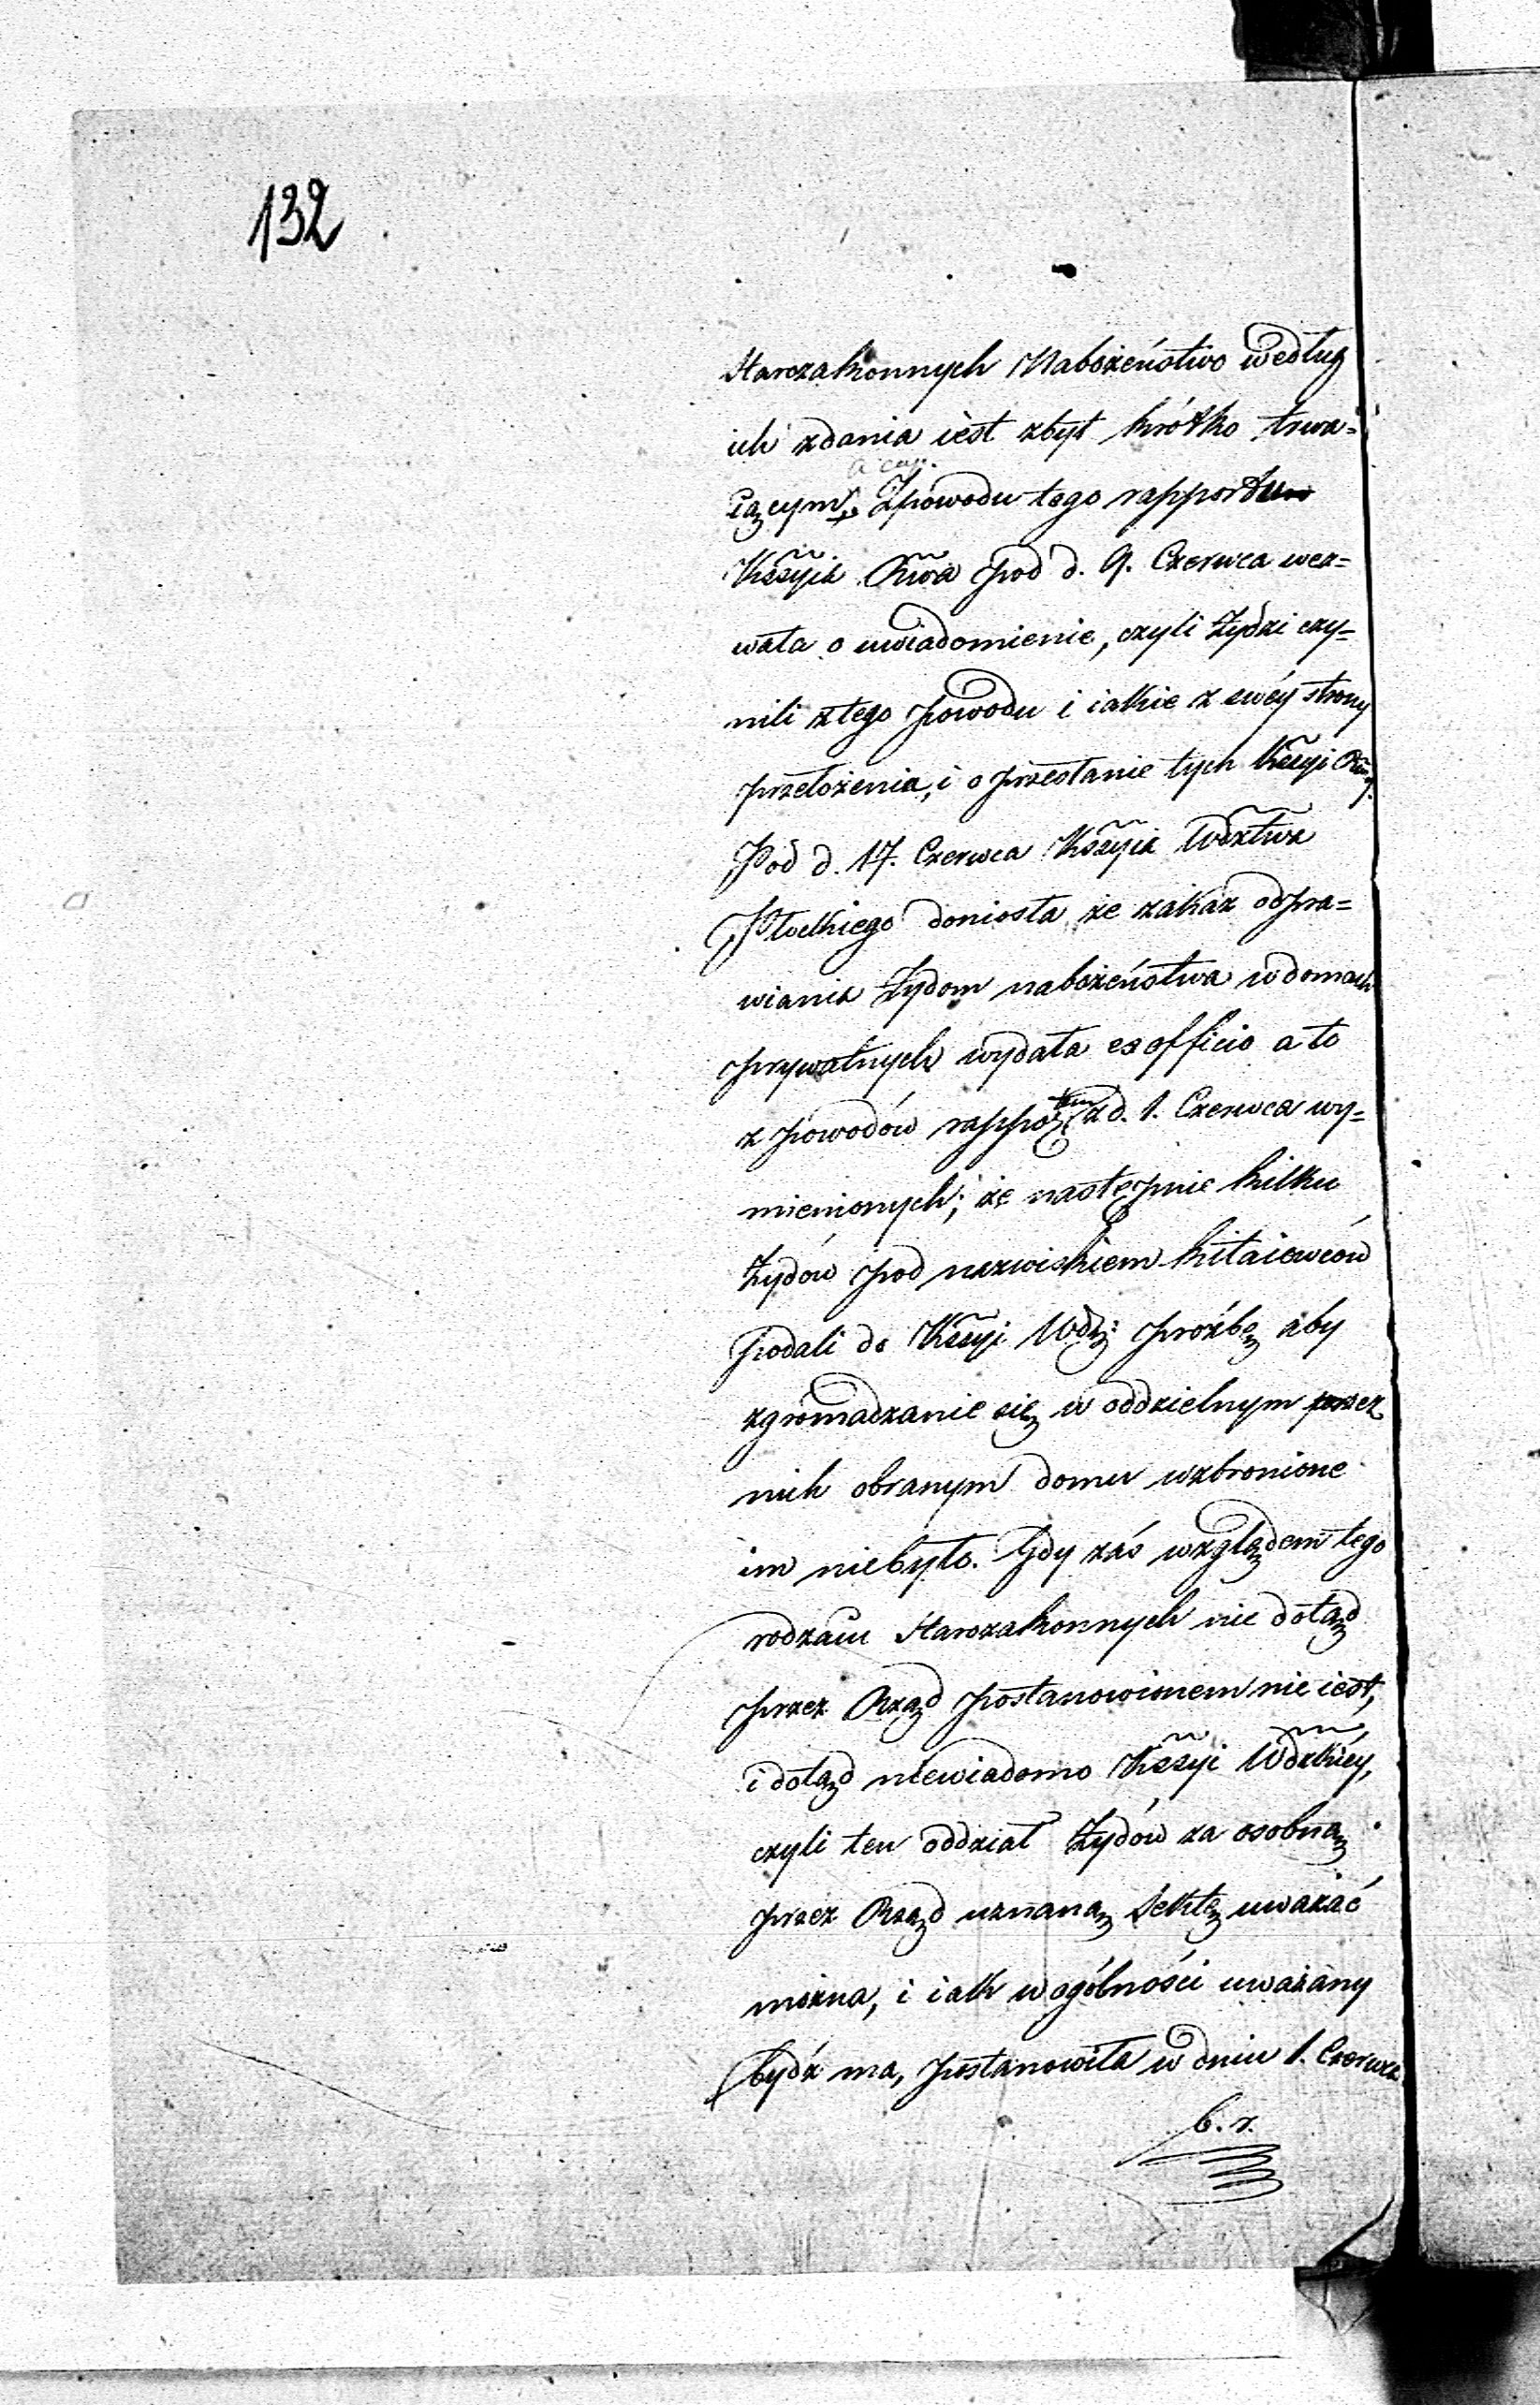 132
Starozakonnych Nabożeństwo według
ich zdania iest zbyt krótko trwa=
a cap.
iącym. Zpowodu tego rapportu
Kssyia Rwa pod d. 9. Czerwca wez=
wała o uwiadomienie, czyli Żydzi czy=
nili ztego powodu i iakie z swéy strony
przełożenia, i o przesłanie tych Kssyi Rwéy.
Pod d. 17. Czerwca Kssyia Wdztwa
Płockiego doniosła, że zakaz odpra=
wiania Żydom nabożeństwa w domach
prywatnych wydała ex officio a to
z powodów rapportem z d. 1. Czerwca wy=
mienionych; że następnie kilku
Żydów pod nazwiskiem kitaiowców
podali do Kssyi Wdz: prożbę aby
zgromadzanie się w oddzielnym przez
nich obranym domu wzbronione
im niebyło. Gdy zaś względem tego
rodzaiu Starozakonnych nic dotąd
przez Rząd postanowionem nie iest,
i dotąd niewiadomo Kssyi Wdzkiéy,
czyli ten oddział Żydów za osobną
przez Rząd uznaną Sektę uważać
można, i iak w ogólności uważany
bydź ma, postanowiła w dniu 1. Czerwca
b. r.